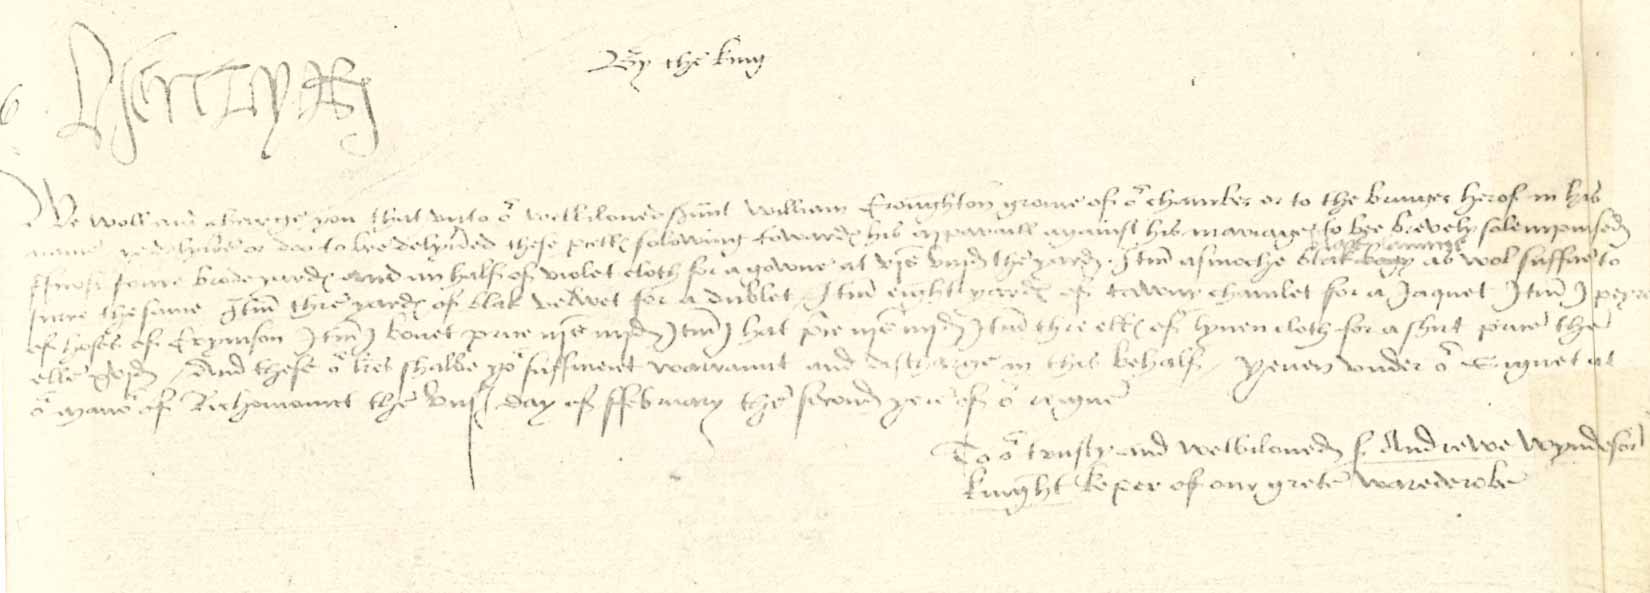 6
Henry R
By the king
We woll and charge you that unto oʳ welbiloved sᵛaunt William Croughton grome of oʳ chambre or to the bringer herof in his
name ye delyver or doo to bee delyvered these pcells folowing towards his apparaill against his mariage to bee brevely solempnised
ffurst foure brode yards and an half of violet cloth for a gowne at vjs viijd the yard Itm asmoche blak bogy as wol suffice to
furre the same Itm thre yards of blak velwet for a dublet Itm eight yards of tawny chamlet for a Jaquet Itm j peyre
of hoses of Crymson Itm j bonet price iijs iiijd Itm j hat price Itm thre ells of lynen cloth for a shirt price the
elle And these oʳ lres shalbe yoʳ sufficient warraunt and discharge in this behalf Yeven under oʳ Signet at
oʳ Manoʳ of Richemount the day of ffebruary the second yere of oʳ reigne
To oʳ trusty and welbiloved sʳ Andrewe Wyndesore
knight keper of our grete warederobe